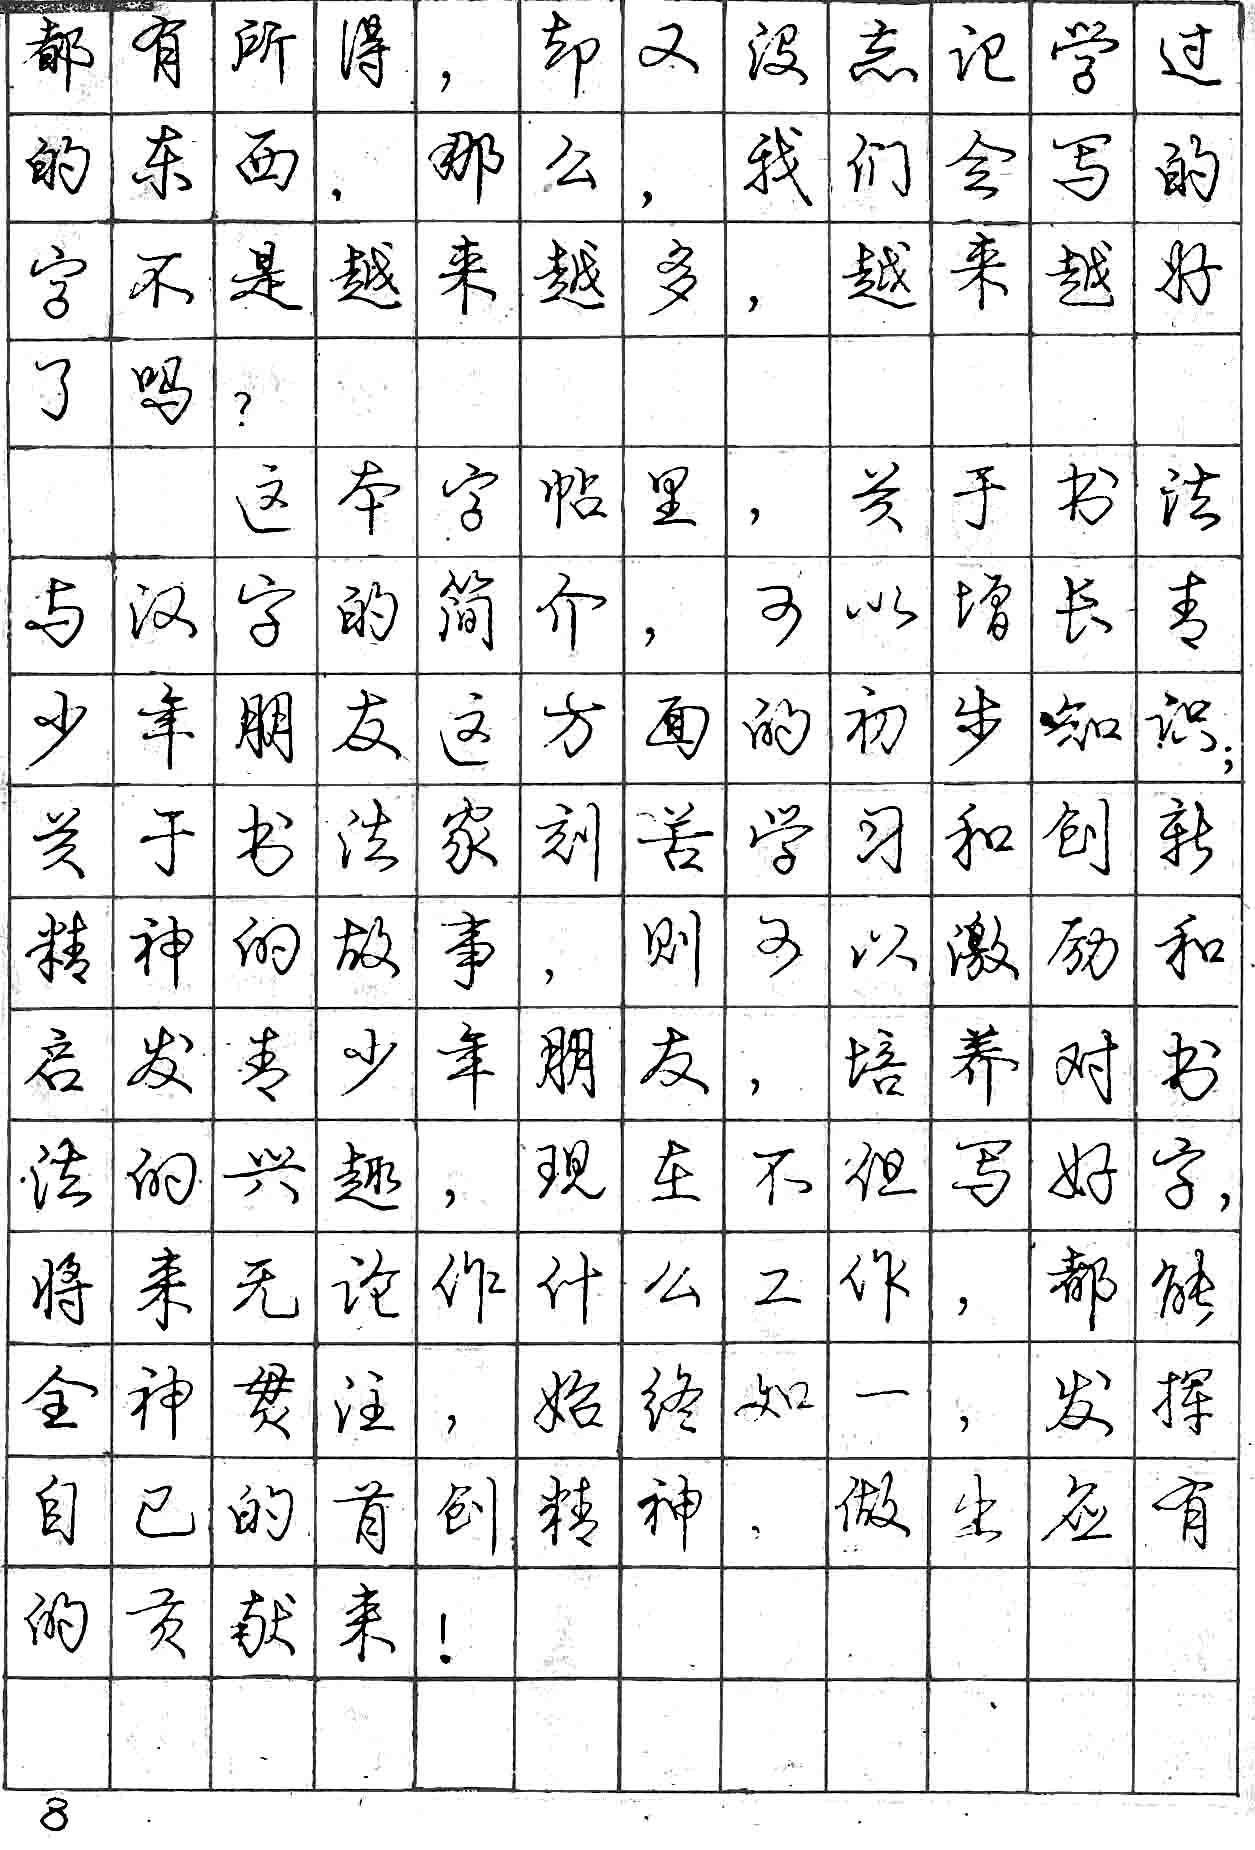 都有所得，却又没忘记学过
的东西，那么，我们会写的
字不是越来越多，越来越好
了吗？
这本字帖里，关于书法
与汉字的简介，可以增长青
少年朋友这方面的初步知识；
关于书法家刻苦学习和创新
精神的故事，则可以激励和
启发青少年朋友，培养对书
法的兴趣，现在不但写好字，
将来无论作什么工作，都能
全神贯注，始终如一，发挥
自己的首创精神，做出应有
的贡献来！
8